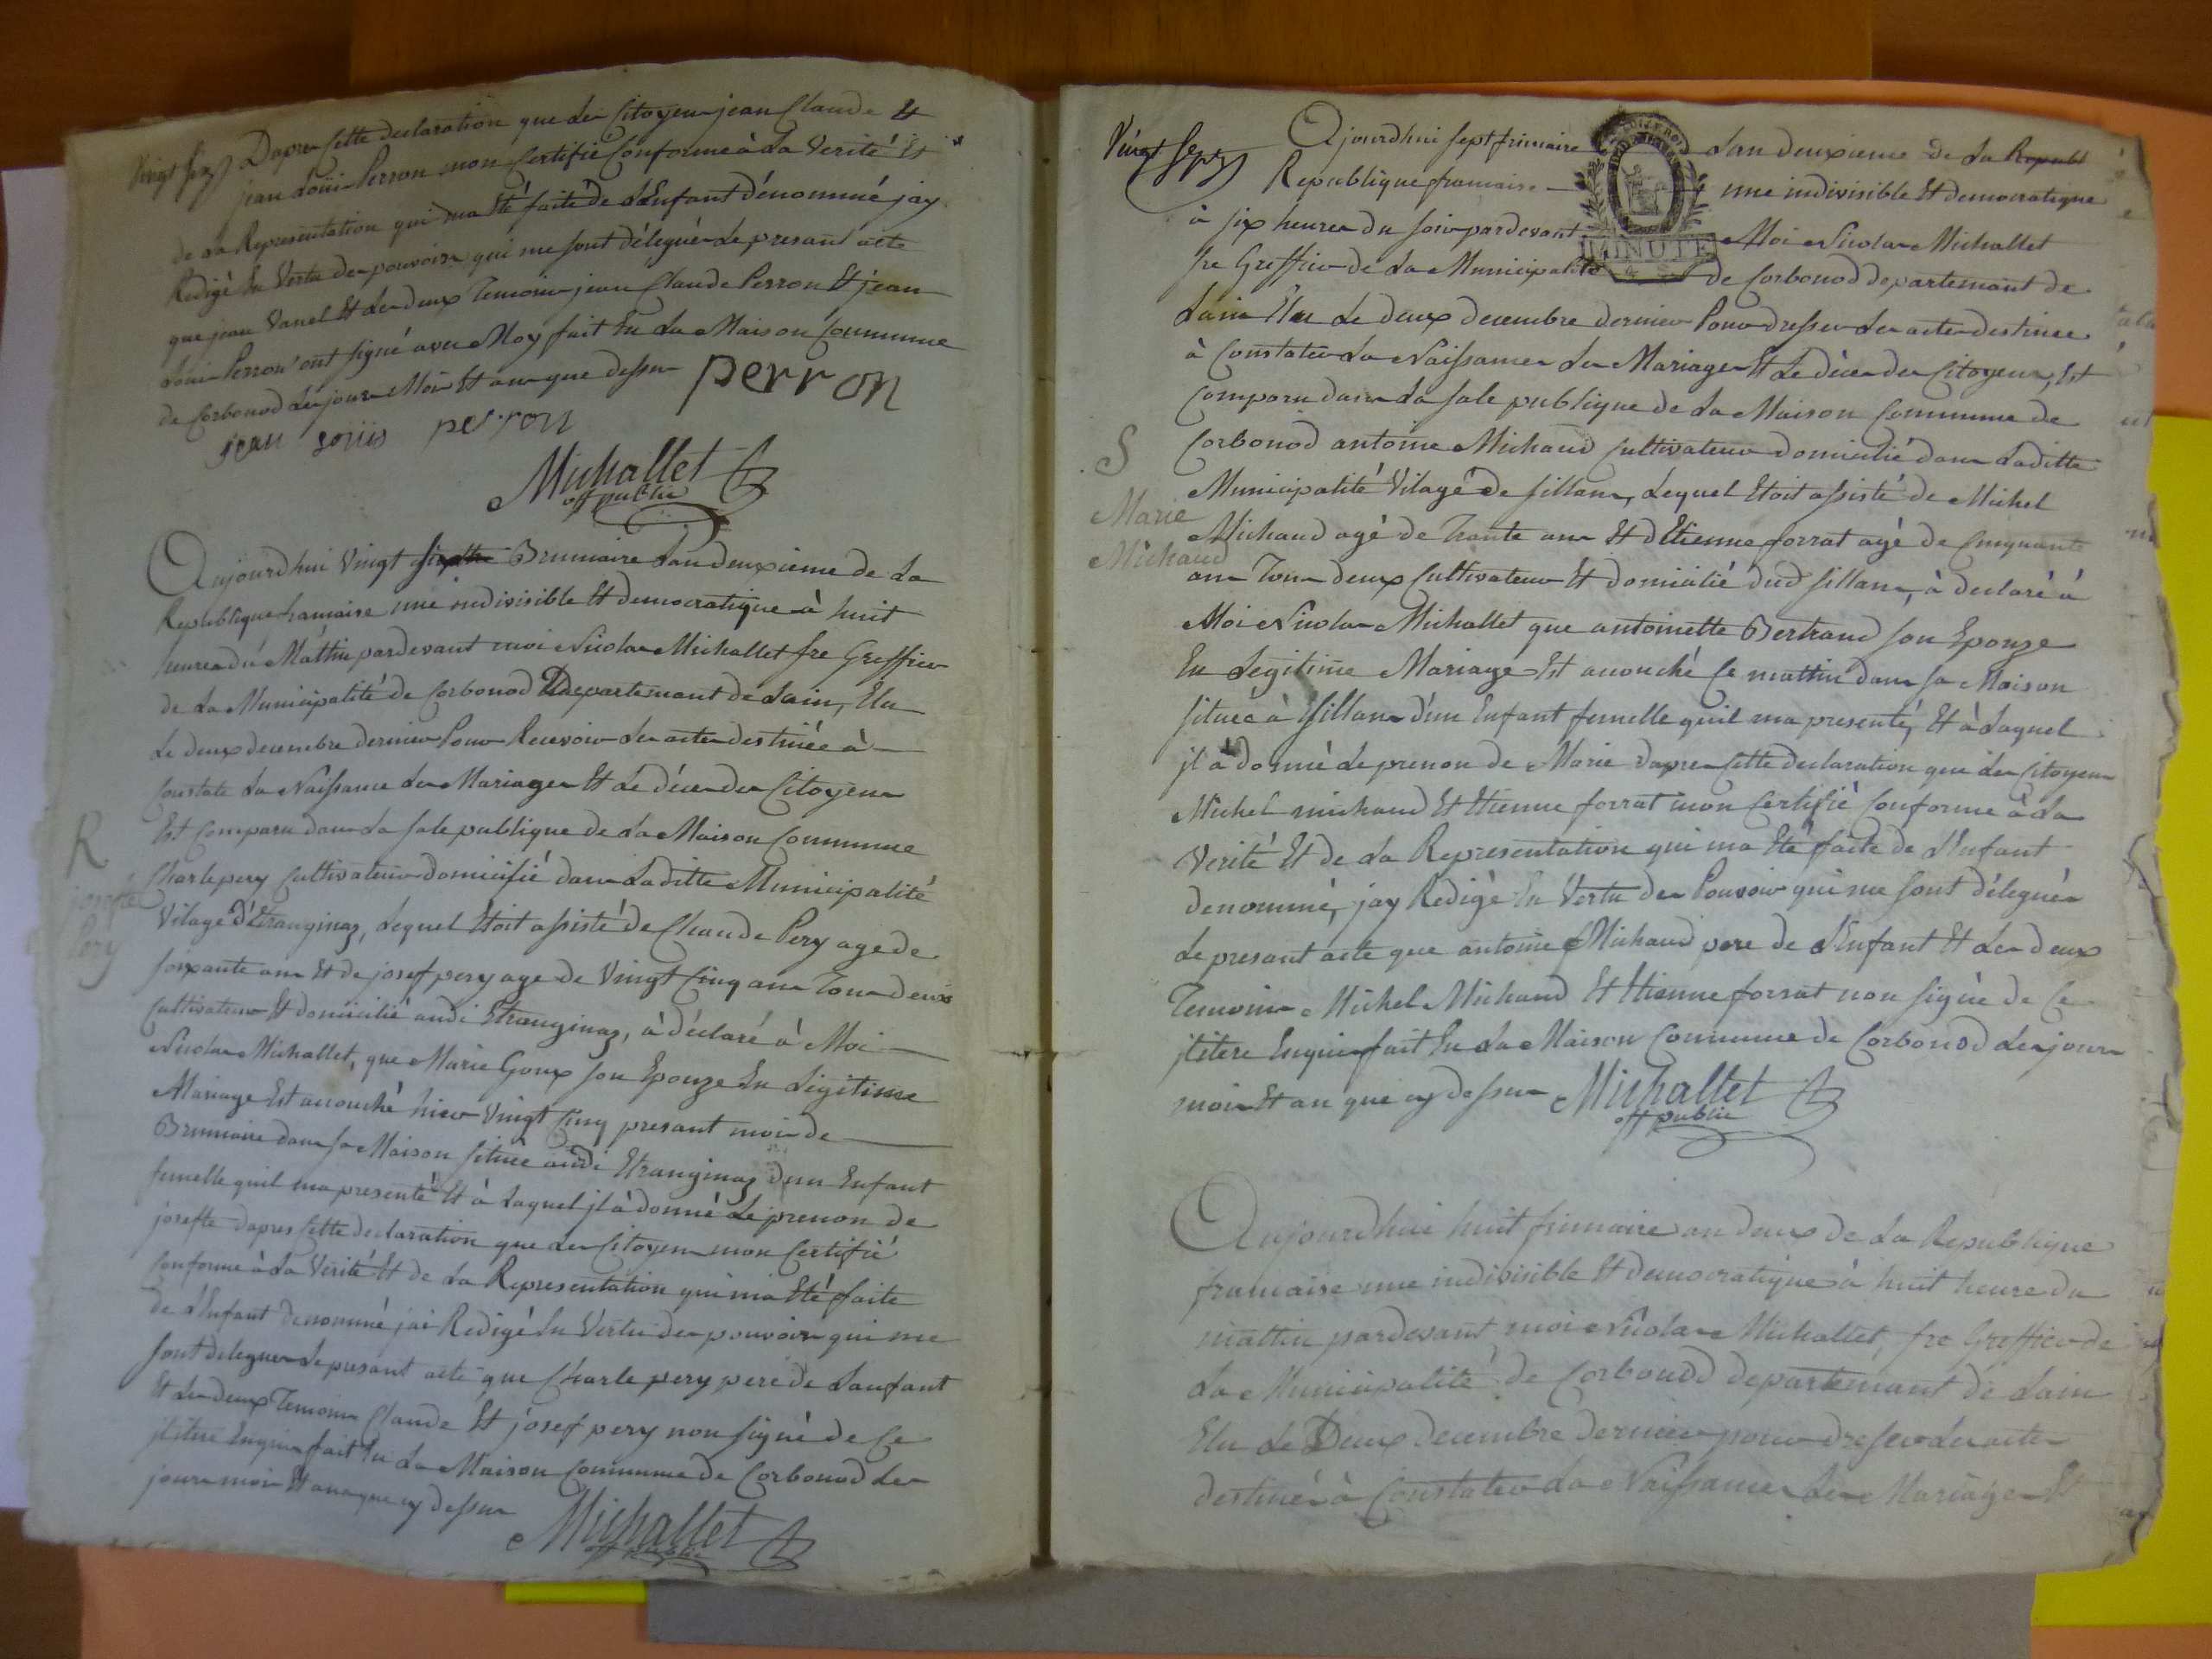 Vingt Six Dapres Cette declaration que Les Citoyens jean Claude Et
jean Loüis Perron mon Certifié Conforme à La Verité Et
de La Representation qui ma Eté faite de L'Enfant dénommé jay
Redigé En Vertu des pouvoirs qui me sont délegués Le presant acte
que jean Vanel Et Les deux Temoins jean Claude Perron Et jean
Loui Perron ont signé avec Moy fait En La Maison Commune
de Corbonod Les jours Mois Et an que dessus perron
jean louiis perron
Michallet
off public
Aujourdhui Vingt Brumaire L'an deuxieme de La
Republique francaise une indivisible Et democratique à huit
heures du Mattin pardevant moi Nicolas Michallet fre Greffier
de La Municipalité de Corbonod Departemant de Lain, Elu
Le deux decembre dernier Pour Recevoir Les actes destinée à
Constate La Naissance Les Mariages Et Le déces des Citoyens
Est Comparu dans La sale publique de La Maison Commune
R
Charle pery Cultivateur domicilié dans Laditte Municipalité
josefte
Pery
Vilage d'Etranginaz, Lequel Etoit assisté de Claude Pery age de
soixante ans Et de josef pery age de Vingt Cinq ans Tous deuxs
Cultivateur Et domicilié audi Etranginaz, à déclaré à Moi
Nicolas Michallet, que Marie Goux son Epouze En Légitime
Mariage Est acouché hier Vingt Cinq presant mois de
Brumaire dans sa Maison située audi Etranginaz d'un Enfant
femelle quil ma presenté Et à Laquel jl à donné Le prenon de
josefte dapres Cette declaration que Les Citoyens mon Certifié
Conforme à La Verité Et de La Representation qui ma Eté faite
de L'Enfant denommé jai Redigé En Vertu des pouvoirs qui me
sont delegues Le presant acte que Charle pery pere de Lanfant
Et Les deux Temoins Claude Et josef pery non signé de Ce
jlitere Enquis fait En La Maison Commune de Corbonod Les
jours mois Et ans que cy dessus
Michallet
off public
Vingt Sept
Ajourdhui sept frimaire Lan deuxieme de La Republ
Republique francaise une indivisible Et democratique
à six heures du soir pardevant Moi Nicolas Michallet
MINUTE
fre Greffier de La Municipalité de Corbonod departemant de
Lain Elu Le deux decembre dernier Pour dresser Les actes destinee
à Constater La Naissances Les Mariages Et Le déces des Citoyens, Est
Comparu dans La sale publique de La Maison Commune de
S
Corbonod antoine Michaud Cultivateur domicilié dans Laditte
Municipalité Vilage de sillans, Lequel Etoit assisté de Michel
Marie
Michaud
Michaud agé de Trante ans Et d'Etienne forrat agé de Cinquante
ans Tous deux Cultivateur Et domicilié dud sillans, à declaré à
Moi Nicolas Michallet que antoinette Bertrand son Epouze
En Legitime Mariage Est acouché Ce mattin dans sa Maison
située à sillans d'un Enfant femelle quil ma presenté, Et à Laquel
jl à donné Le prenon de Marie dapres Cette declaration que Les Citoyens
Michel michaud Et Etienne forrat mon Certifié Conforme à La
Verité Et de La Representation qui ma Eté faite de L'Enfant
denommé, jay Redigé En Vertu des Pouvoir qui me sont délegués
Le presant acte que antoine Michaud pere de L'Enfant Et Les deux
Temoins Michel Michaud Et Etienne forrat non signé de Ce
jlitere Enquis fait En La Maison Commune de Corbonod Les jours
mois Et an que cy dessus Michallet
off public
Aujourdhui huit frimaire an deux de La Republique
francaise une indivisible Et democratique à huit heure du
mattin pardevant moi Nicolas Michallet, fre Greffier de
La Municipalité de Corbonod departemant de Lain
Elu Le Deux decembre dernier pour dresser Les actes
destiné à Constater La Naissances Les Mariages Et